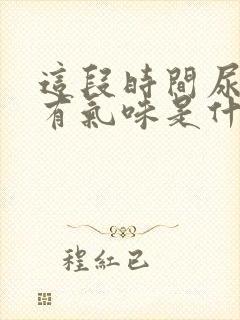 這段時間尿
有氣味是什
程紅已